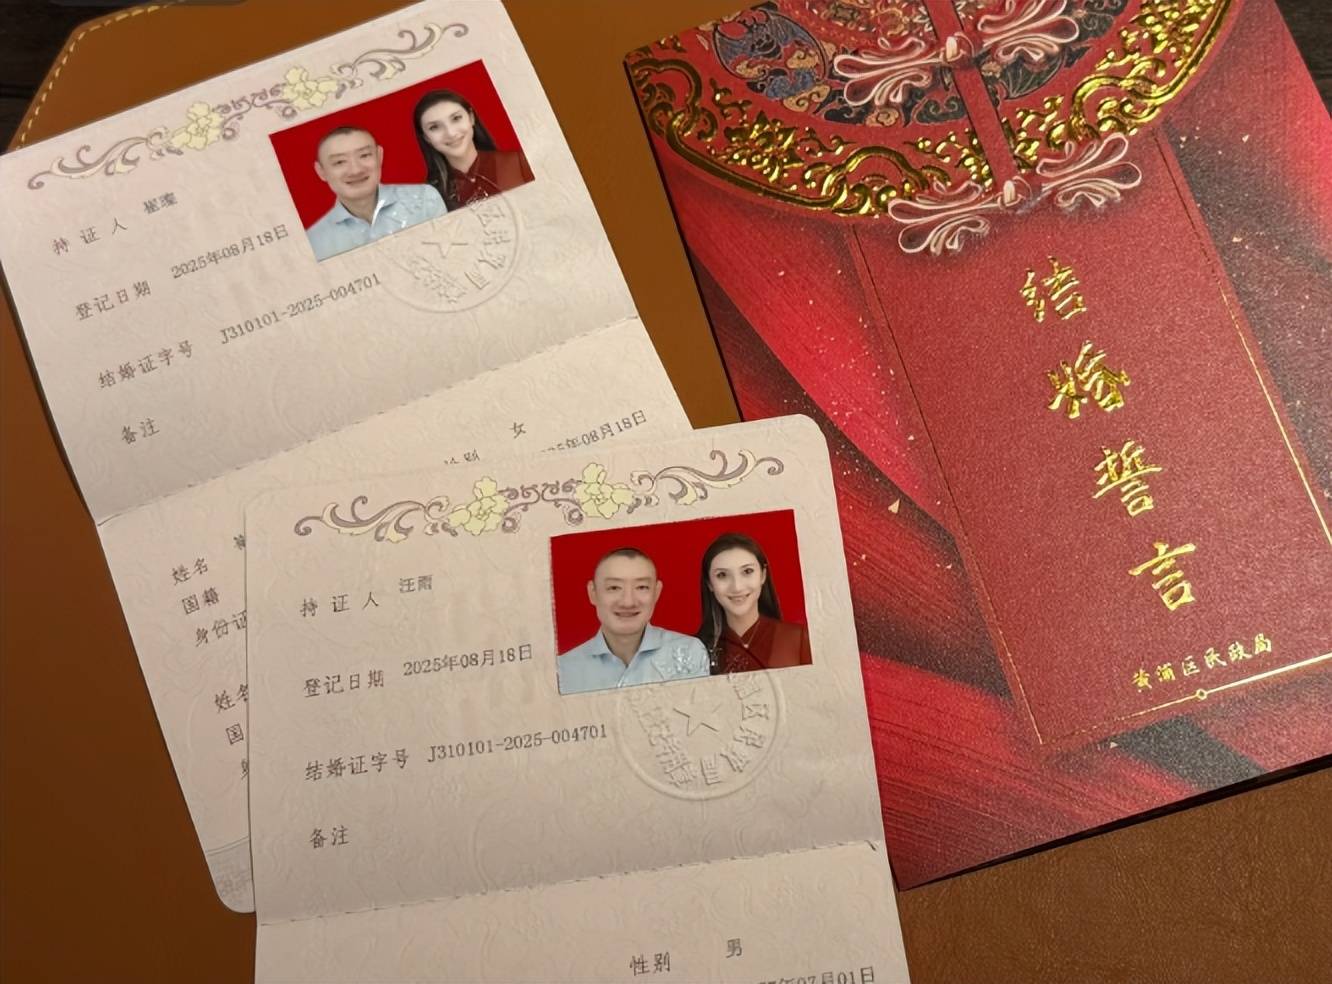 持证人 崔璨
登记日期 2025年08月18日
结婚证字号 J310101-2025-004701
备注
女
年08月18日
姓名
国籍
身份证
姓名
国
持证人 汪雨
登记日期 2025年08月18日
结婚证字号 J310101-2025-004701
备注
性别 男
年07月01日
结婚誓言
黄浦区民政局